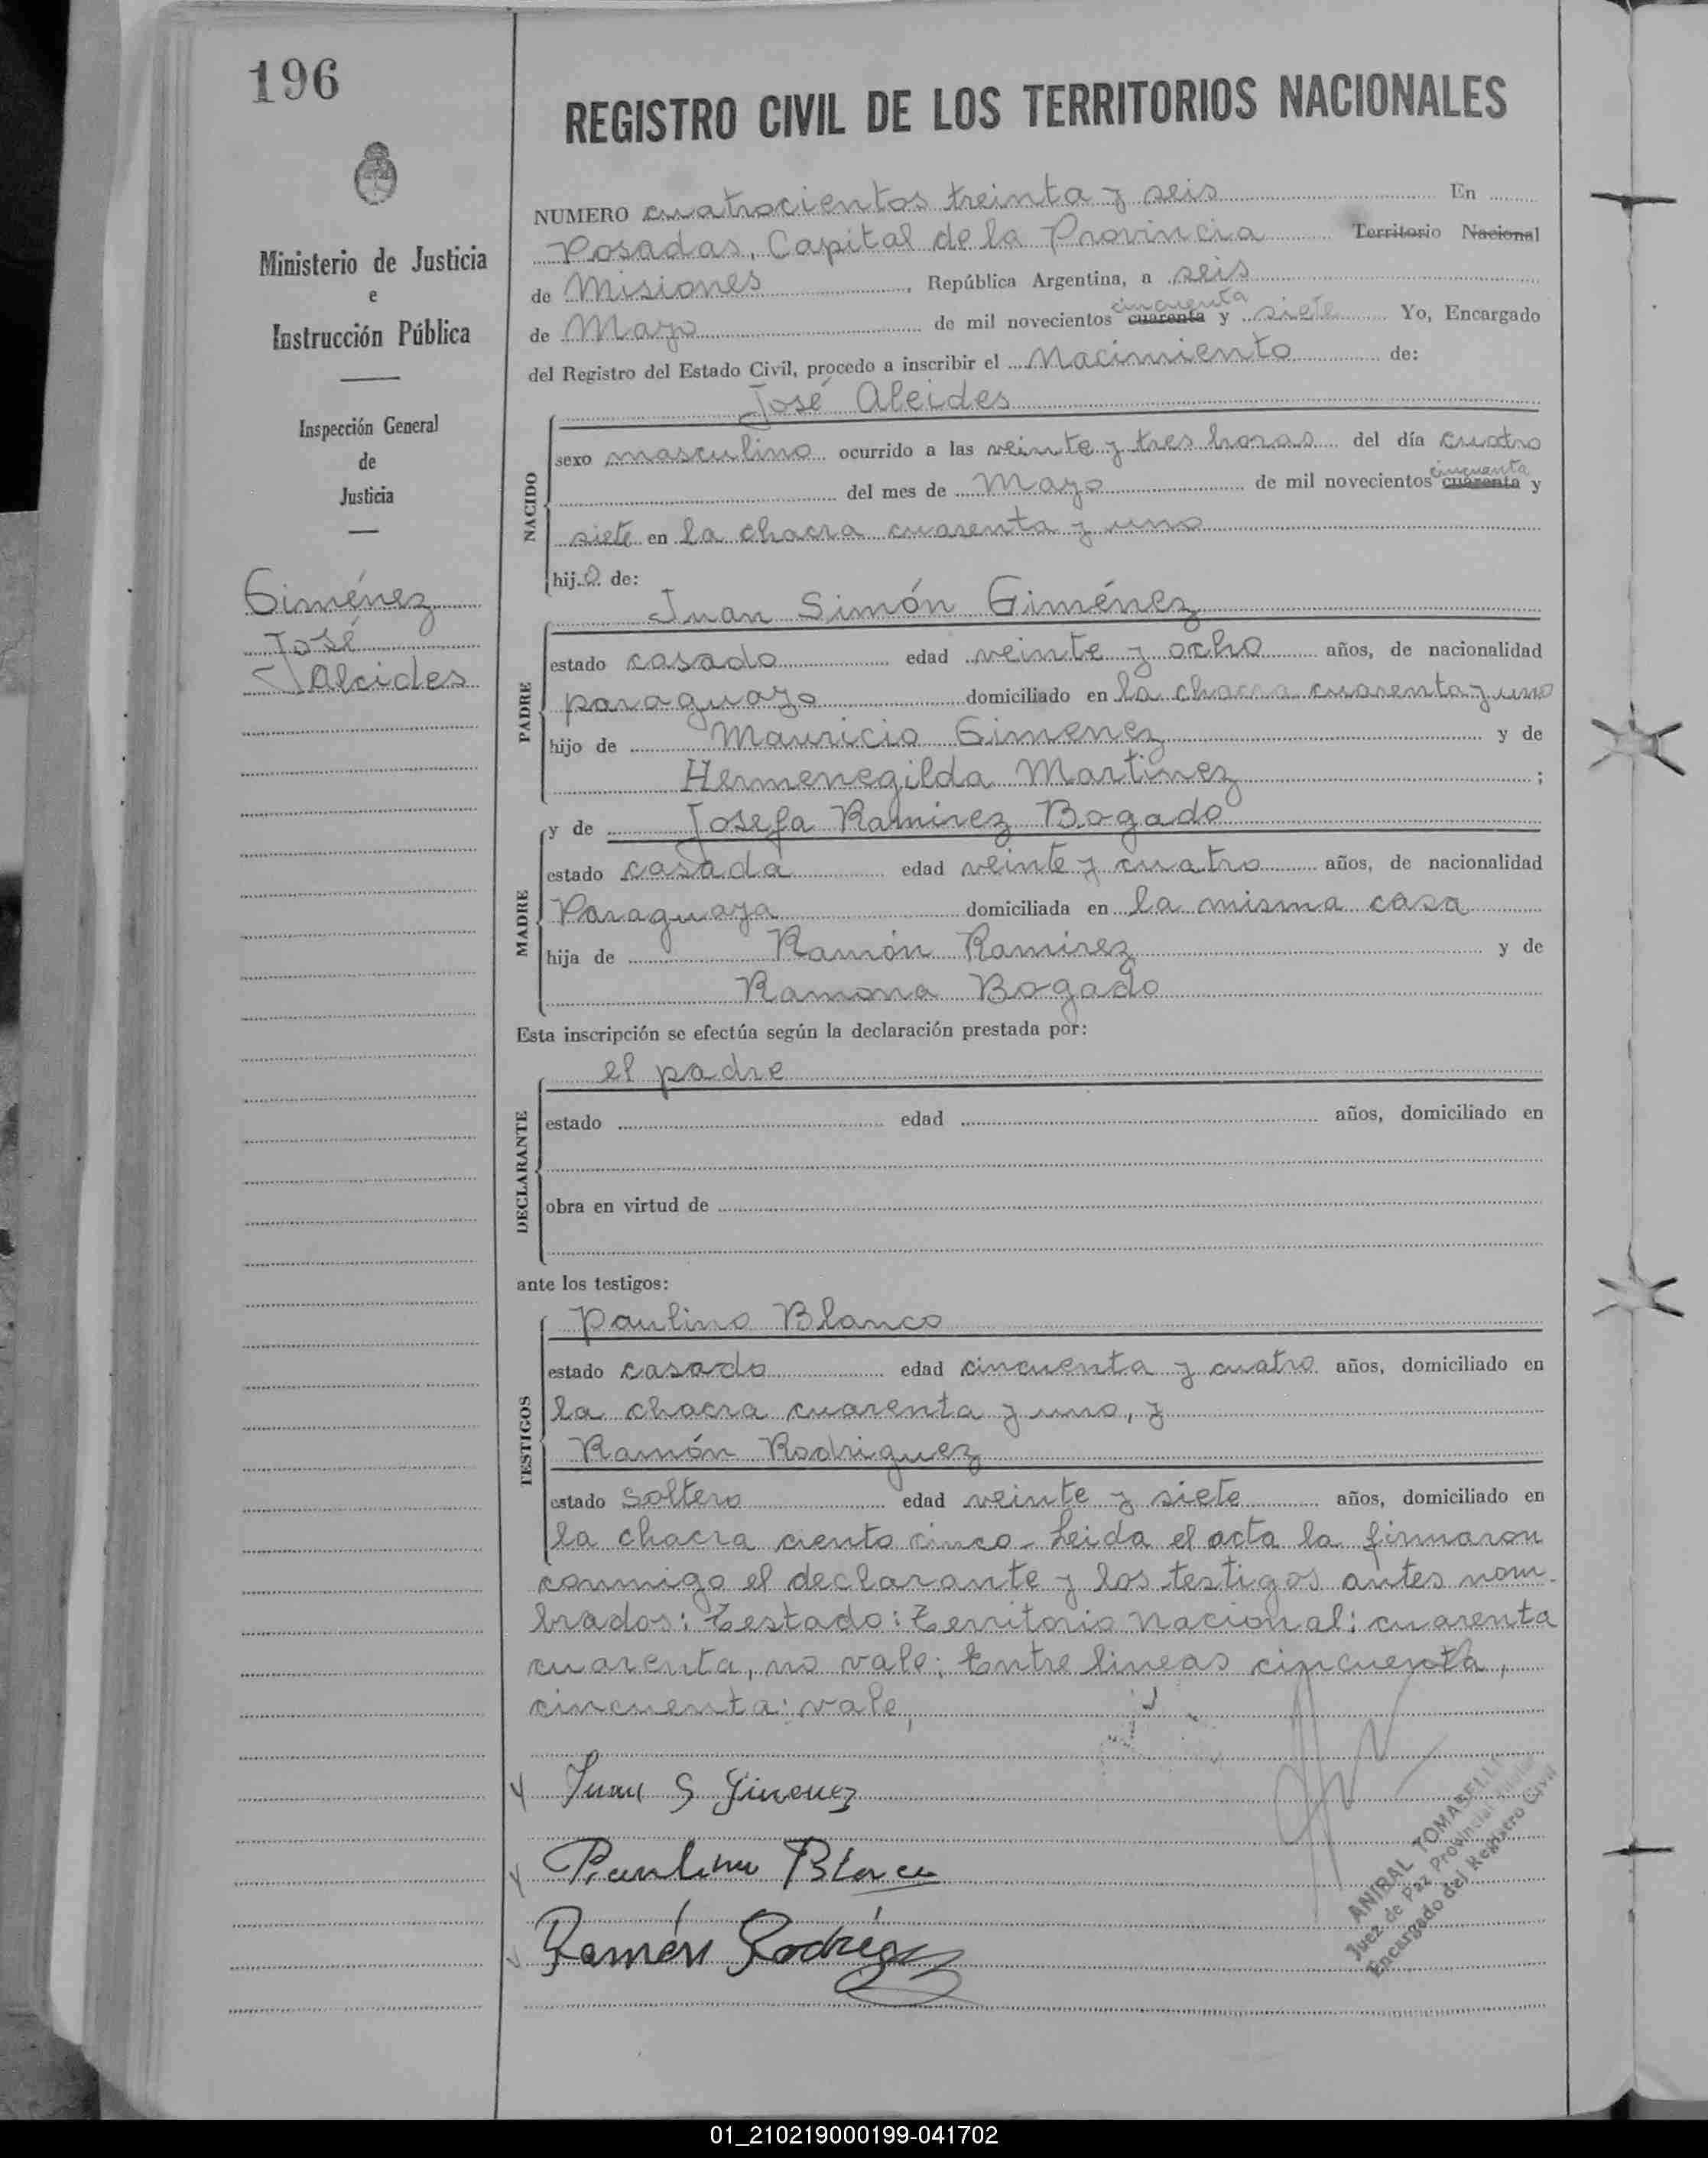 196
Ministerio de Justicia
e
Instrucción Pública
Inspección General
de
Justicia
Giménez
José
Alcides
REGISTRO CIVIL DE LOS TERRITORIOS NACIONALES
NUMERO cuatrocientos treinta y seis En
Posadas, Capital de la Provincia Territorio Nacional
de Misiones, República Argentina, a seis
cincuenta
de Mayo de mil novecientos cuarenta y siete Yo, Encargado
del Registro del Estado Civil, procedo a inscribir el Nacimiento de:
José Alcides
NACIDO
sexo masculino ocurrido a las veinte y tres horas del día cuatro
cincuenta
del mes de Mayo de mil novecientos cuarenta y
siete en la chacra cuarenta y uno
hijo de:
Juan Simón Giménez
PADRE
estado casado edad veinte y ocho años, de nacionalidad
paraguayo domiciliado en la chacra cuarenta y uno
hijo de Mauricio Gimenez y de
Hermenegilda Martinez ;
y de Josefa Ramirez Bogado
MADRE
estado casada edad veinte y cuatro años, de nacionalidad
Paraguaya domiciliada en la misma casa
hija de Ramón Ramirez y de
Ramona Bogado
Esta inscripción se efectúa según la declaración prestada por:
el padre
DECLARANTE
estado edad años, domiciliado en
obra en virtud de
ante los testigos:
Paulino Blanco
TESTIGOS
estado casado edad cincuenta y cuatro años, domiciliado en
la chacra cuarenta y uno, y
Ramón Rodriguez
estado soltero edad veinte y siete años, domiciliado en
la chacra ciento cinco - Leida el acta la firmaron
conmigo el declarante y los testigos antes nom-
brados: Testado: Territorio Nacional: cuarenta
cuarenta, no vale: Entre lineas cincuenta,
cincuenta: vale,
Juan S Gimenez
Paulino Blanco
Ramón Rodríguez
ANIBAL TOMASELLI
Juez de Paz Provincial
Encargado del Registro Civil
01_210219000199-041702